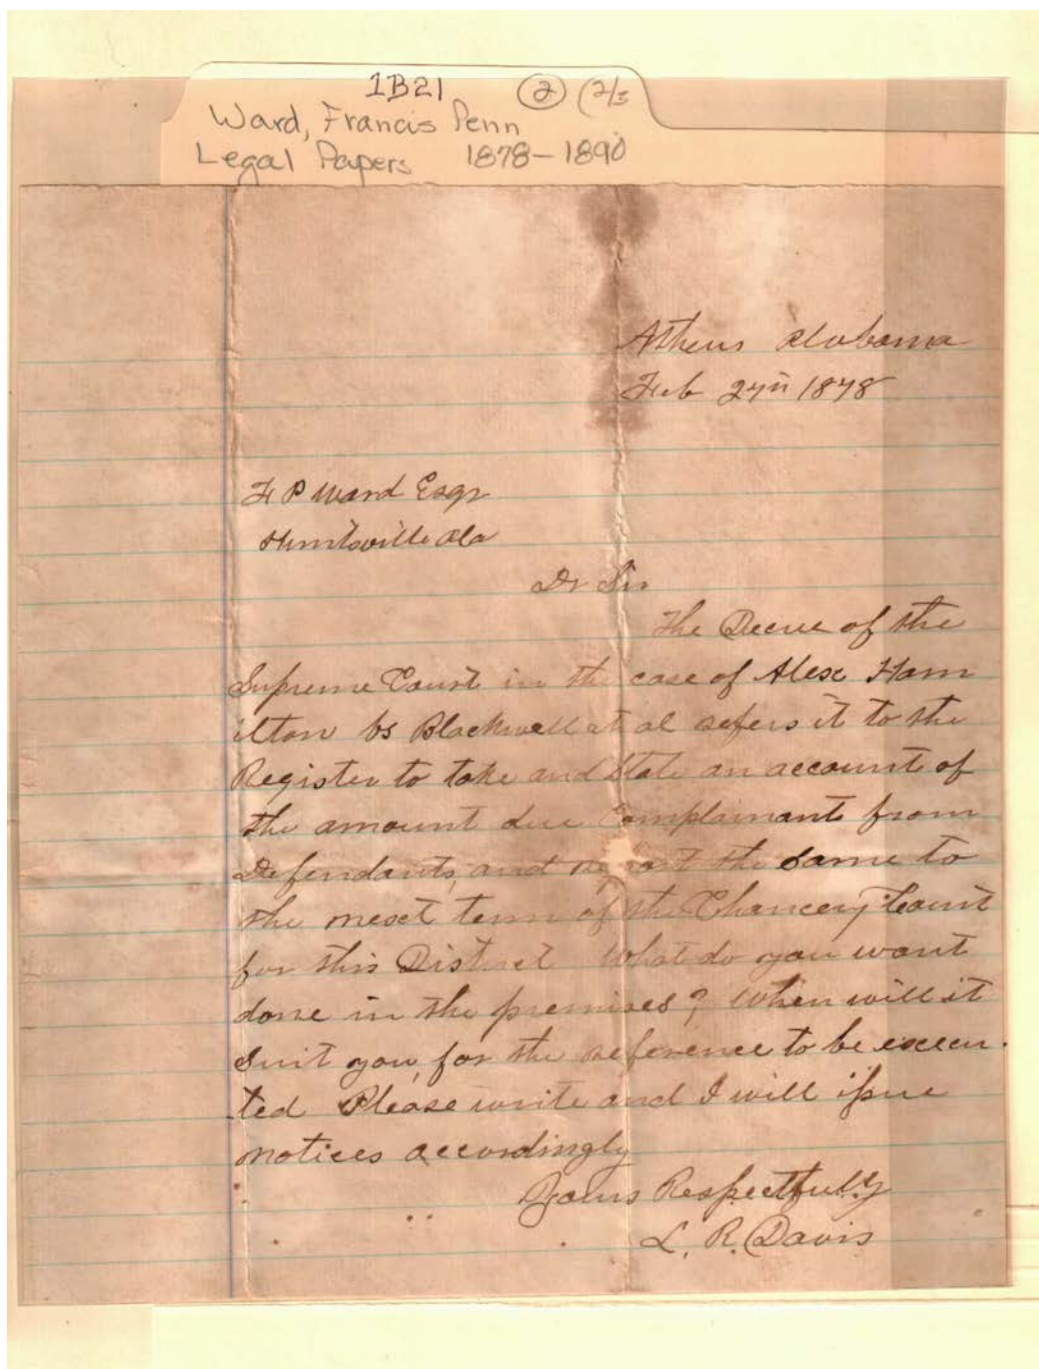 1B21 2 (2/3
Ward, Francis Penn
Legal Papers 1878-1890
Athens Alabama
Feb 27th 1878
F P Ward Esqr
Huntsville Ala
Dr Sir
The Decree of the
Supreme Court in the case of Alex Ham
ilton vs Blackwell et al refers it to the
Register to take and state an account of
the amount due Complainant from
Defendants, and report the same to
the next term of the Chancery Court
for this District What do you want
done in the premises? When will it
suit you, for the reference to be execu
ted Please write and I will issue
notices accordingly
Yours Respectfully
L. R. Davis